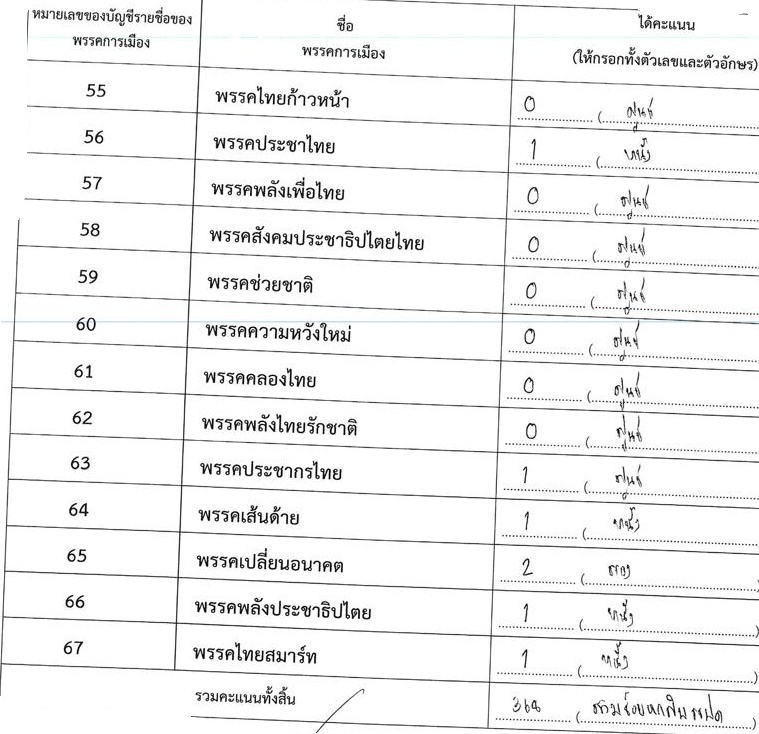 หมายเลขของบัญชีรายชื่อของ
พรรคการเมือง
ชื่อ
พรรคการเมือง
ได้คะแนน
(ให้กรอกทั้งตัวเลขและตัวอักษร)
55 พรรคไทยก้าวหน้า 0 (ศูนย์
56 พรรคประชาไทย 1 (หนึ่ง
57 พรรคพลังเพื่อไทย 0 (ศูนย์
58 พรรคสังคมประชาธิปไตยไทย 0 (ศูนย์
59 พรรคช่วยชาติ 0 (ศูนย์
60 พรรคความหวังใหม่ 0 (ศูนย์
61 พรรคคลองไทย 0 (ศูนย์
62 พรรคพลังไทยรักชาติ 0 (ศูนย์
63 พรรคประชากรไทย 1 (ศูนย์
64 พรรคเส้นด้าย 1 (หนึ่ง
65 พรรคเปลี่ยนอนาคต 2 (สอง)
66 พรรคพลังประชาธิปไตย 1 (หนึ่ง)
67 พรรคไทยสมาร์ท 1 (หนึ่ง)
รวมคะแนนทั้งสิ้น 368 (สามร้อยหกสิบแปด)